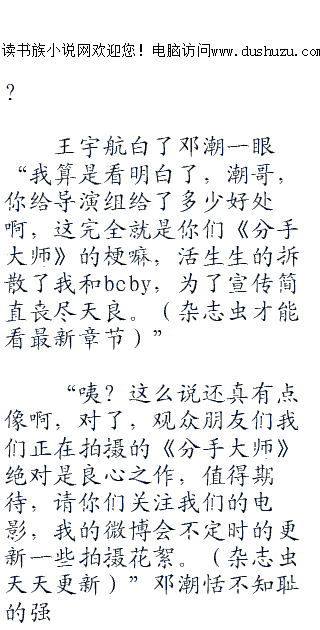 读书族小说网欢迎您！电脑访问www.dushuzu.com
？
王宇航白了邓潮一眼
“我算是看明白了，潮哥，
你给导演组给了多少好处
啊，这完全就是你们《分手
大师》的梗嘛，活生生的拆
散了我和bcby，为了宣传简
直丧尽天良。（杂志虫才能
看最新章节）”
“咦？这么说还真有点
像啊，对了，观众朋友们我
们正在拍摄的《分手大师》
绝对是良心之作，值得期
待，请你们关注我们的电
影，我的微博会不定时的更
新一些拍摄花絮。（杂志虫
天天更新）”邓潮恬不知耻
的强